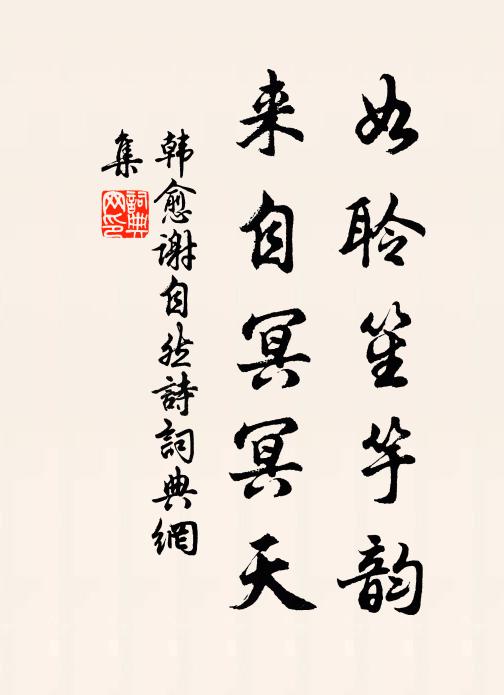 如聆笙竽韵
来自冥冥天
韩愈谢自然詩詞典網
集
詞典网印